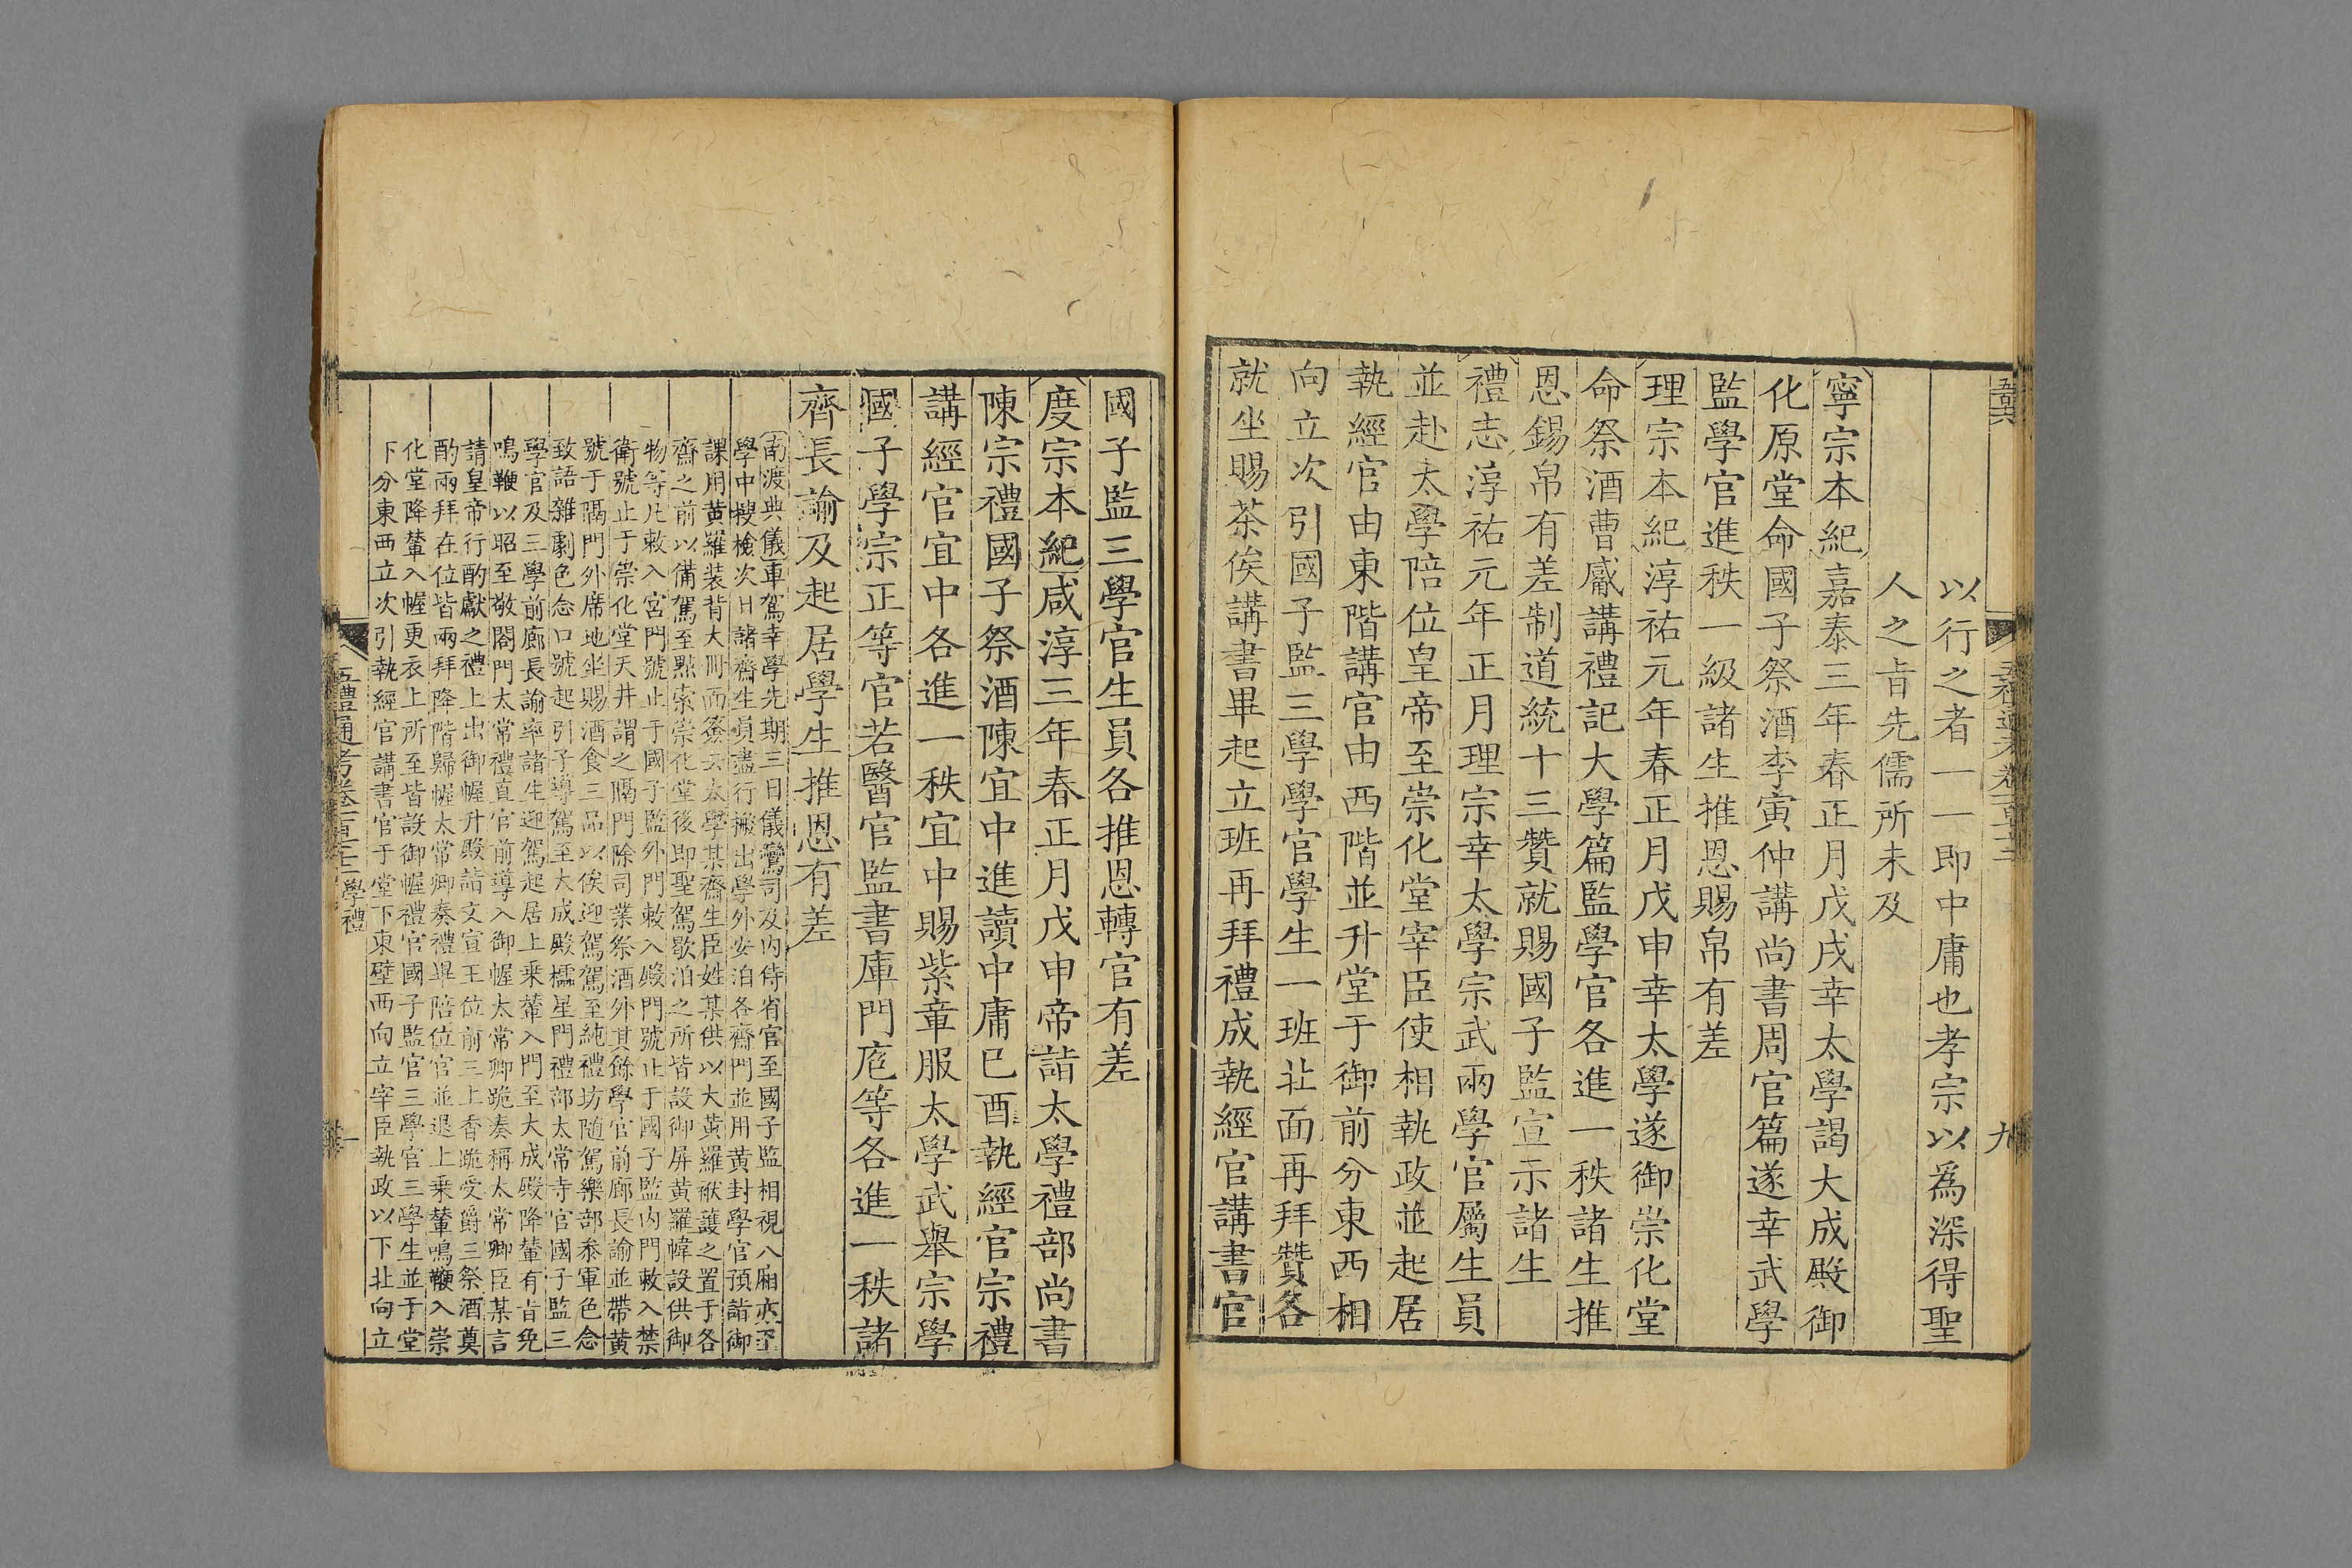 以行之者一一即中庸也孝宗以爲深得聖
人之旨先儒所未及
寧宗本紀嘉泰三年春正月戊戌幸太學謁大成殿御
化原堂命國子祭酒李寅仲講尚書周官篇遂幸武學
監學官進秩一級諸生推恩賜帛有差
理宗本紀淳祐元年春正月戊申幸太學遂御崇化堂
命祭酒曹觱講禮記大學篇監學官各進一秩諸生推
恩錫帛有差制道統十三贊就賜國子監宣示諸生
禮志淳祐元年正月理宗幸太學宗武兩學官屬生員
並赴太學陪位皇帝至崇化堂宰臣使相執政並起居
執經官由東階講官由西階並升堂于御前分東西相
向立次引國子監三學學官學生一班北面再拜贊各
就坐賜茶俟講書畢起立班再拜禮成執經官講書官
國子監三學官生員各推恩轉官有差
度宗本紀咸淳三年春正月戊申帝詣太學禮部尚書
陳宗禮國子祭酒陳宜中進讀中庸已酉執經官宗禮
講經官宜中各進一秩宜中賜紫章服太學武舉宗學
國子學宗正等官若醫官監書庫門庖等各進一秩諸
齊長諭及起居學生推恩有差
南渡典儀車駕幸學先期三日儀鸞司及内侍省官至國子監相視八廂亦至
學中搜檢次日諸齋生員盡行搬出學外安泊各齋門並用黄封學官預詣御
課用黄羅装背大冊面簽云太學某齋生臣姓某供以大黄羅袱護之置于各
齋之前以備駕至點索崇化堂後即聖駕歇泊之所皆設御屏黄羅幃設供御
物等凡敕入宮門號止于國子監外門敕入殿門號止于國子監内門敕入禁
衛號止于崇化堂天井謂之隔門除司業祭酒外其餘學官前廊長諭並帶黄
號于隔門外席地坐賜酒食三品以俟迎駕駕至純禮坊随駕樂部叅軍色念
致語雜劇色念口號起引子導駕至大成殿櫺星門禮部太常寺官國子監三
學官及三學前廊長諭率諸生迎駕起居上乘輦入門至大成殿降輦有旨免
鳴鞭以昭至敬閤門太常禮直官前導入御幄太常卿跪奏稱太常卿臣某言
請皇帝行酌獻之禮上出御幄升殿詣文宣王位前三上香跪受爵三祭酒奠
酌兩拜在位皆兩拜降階歸幄太常卿奏禮畢陪位官並退上乘輦鳴鞭入崇
化堂降輦入幄更衣上所至皆設御幄禮官國子監官三學官三學生並于堂
下分東西立次引執經官講書官于堂下東壁西向立宰臣執政以下北向立
五禮通考卷一百七十二學禮